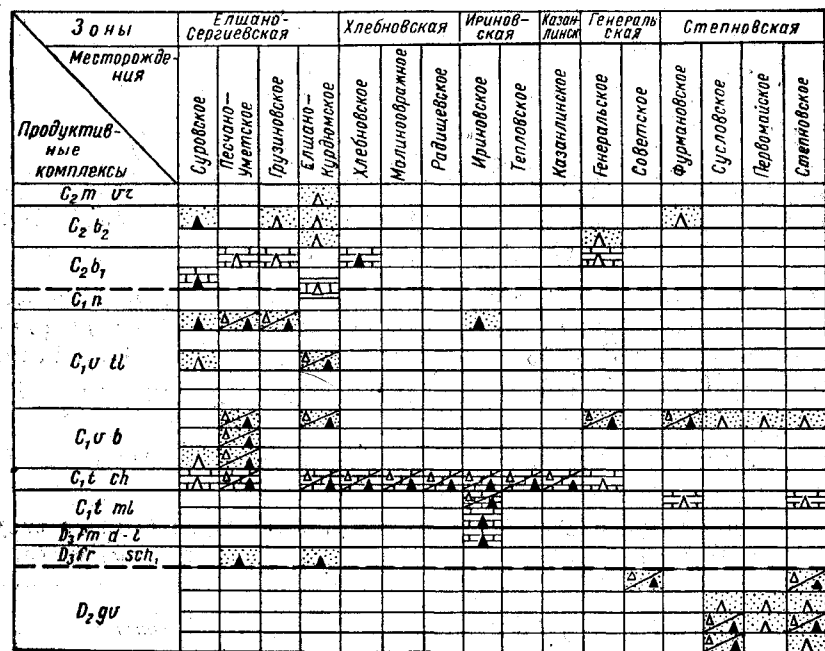 Зоны
Елшано-
Сергиевская
Хлебновская
Иринов-
ская
Казан-
линск
Генераль
ская
Степновская
Месторожде-
ния
Продуктив-
ные
комплексы
Суровское
Песчано-
Уметское
Грузиновское
Елшано-
Курдюмское
Хлебновское
Малиноовражное
Радищевское
Ириновское
Тепловское
Казанлинское
Генеральское
Советское
Фурмановское
Сусловское
Первомайское
Степновское
C₂m vr
C₂b₂
C₂b₁
C₁n
C₁v tl
C₁v b
C₁t ch
C₁t ml
D₃fm d-l
D₃fr sch₁
D₂gv